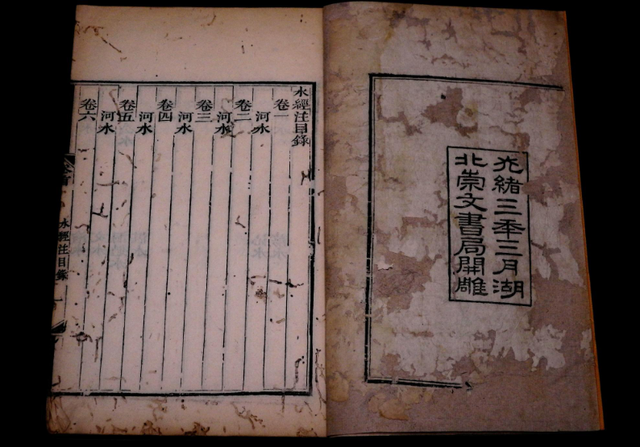 光緒三年三月湖
北崇文書局開雕
水經注目錄
卷一
河水
卷二
河水
卷三
河水
卷四
河水
卷五
河水
卷六
水經注目錄